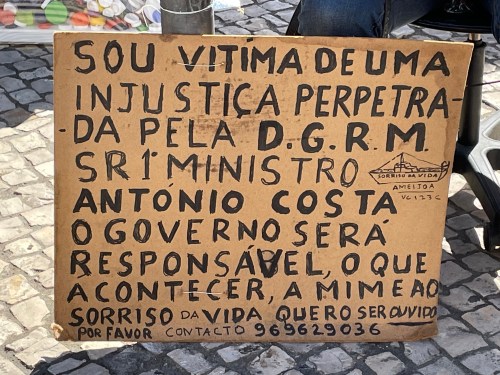 SOU VITÍMA DE UMA
INJUSTIÇA PERPETRA-
-DA PELA D.G.R.M.
SR 1º MINISTRO
SORRISO DA VIDA
AMEIJOA
ANTÓNIO COSTA
O GOVERNO SERÁ
RESPONSÁVEL, O QUE
ACONTECER, A MIM E AO
SORRISO DA VIDA QUERO SER OUVIDO
POR FAVOR CONTACTO 969629036